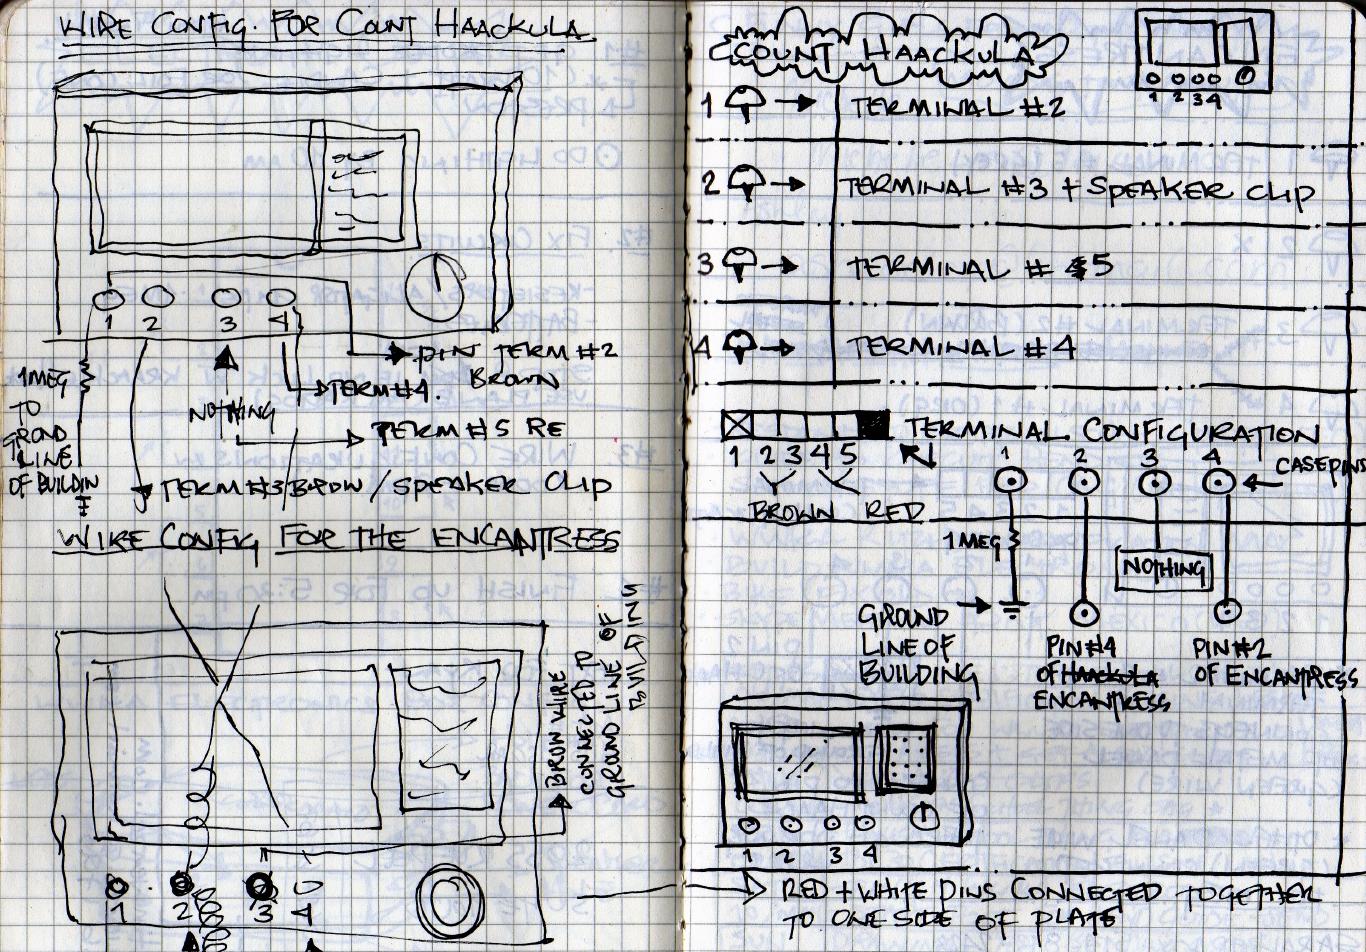 WIRE CONFIG. FOR COUNT HAACKULA
1 2 3 4
1MEG
TO
GROND
LINE
OF BUILDIN
NOTHING
PIN TERM #2
BROWN
TERM #4.
TERM #5 RE
TERM #3 BROWN / SPEAKER CLIP
WIRE CONFIG FOR THE ENCANTRESS
BROW WIRE
CONNECTED TO
GROUND LINE OF
BUILDING
1 2 3 4
COUNT HAACKULA
1 2 3 4
1 TERMINAL #2
2 TERMINAL #3 + SPEAKER CLIP
3 TERMINAL # 5
4 TERMINAL #4
TERMINAL CONFIGURATION
1 2 3 4 5
BROWN RED
1 2 3 4 CASE PINS
1 MEG
NOTHING
GROUND
LINE OF
BUILDING
PIN #4
OF HAACKULA
ENCANTRESS
PIN #2
OF ENCANTRESS
1 2 3 4
RED + WHITE PINS CONNECTED TOGETHER
TO ONE SIDE OF PLATE